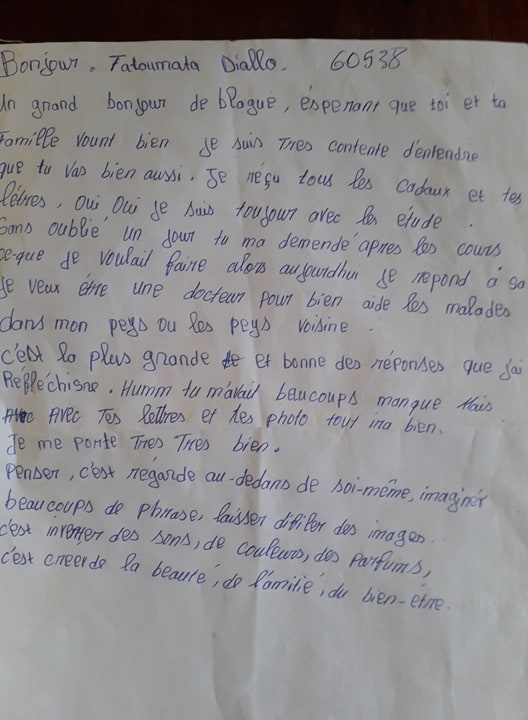 Bonjour. Fatoumata Diallo. 60538
Un grand bonjour de blague, ésperant que toi et ta
Famille vount bien je suis Tres contente d'entendre
que tu vas bien aussi. Je réçu tous les cadaux et tes
létres, oui oui je suis toujour avec les étude.
Sans oublié un jour tu ma demendé apres les cours
ce-que je voulait faire alors aujourdhui je repond à sa
Je veux être une docteur pour bien aide les malades
dans mon peys ou les peys voisine.
c'est la plus grande et bonne des réponses que j'ai
Réfléchisne. Humm tu m'avait beaucoups manque Mais
Avec Tes lettres et tes photo tout ira bien.
Je me porte Tres Tres bien.
Penser, c'est régarde au-dedans de soi-même, imaginér
beaucoups de phrase, laisser difiler des images.
c'est inventer des sons, de couleurs, des parfums,
c'est creer de la beauté, de l'amitié, du bien-etre.